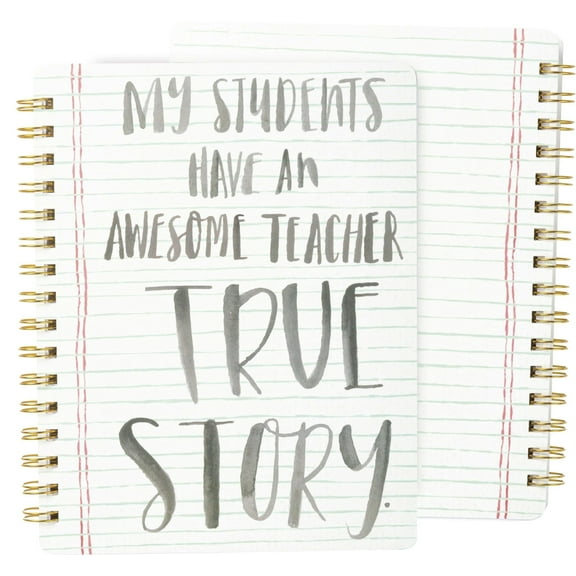 MY STUDENTS
HAVE AN
AWESOME TEACHER
TRUE
STORY.